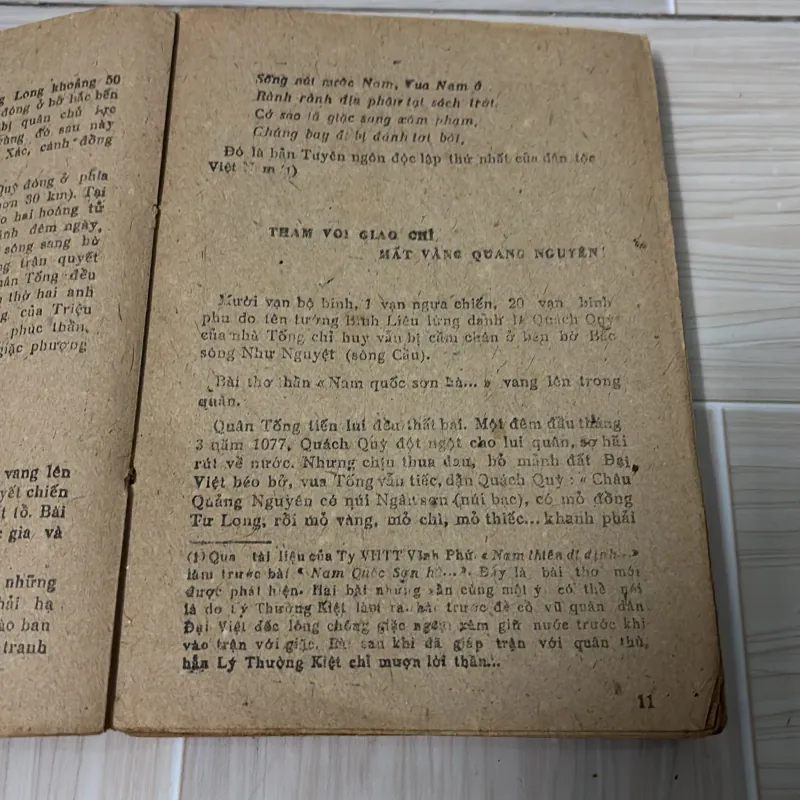 g Long khoảng 50
đóng ở bờ bắc bến
bị quân chủ lực
àng đó sau này
Xác, cánh đồng
Quỳ đóng ở phía
ơn 30 km). Tại
o hai hoảng tử
nh đêm ngày,
sông sang bờ
g trận quyết
hân Tống đều
thờ hai anh
g của Triệu
phúc thần,
giặc phượng
vang lên
yết chiến
t tổ. Bài
c gia và
những
hải hạ
ào ban
tranh
Sông núi nước Nam, Vua Nam ở
Rành rành địa phận tại sách trời.
Cớ sao lũ giặc sang xâm phạm,
Chúng bay đi bị đánh tơi bời.
Đó là bản Tuyên ngôn độc lập thứ nhất của dân tộc
Việt Nam (1)
THAM VOI GIAO CHỈ,
MẤT VÀNG QUANG NGUYÊN!
Mười vạn bộ binh, 1 vạn ngựa chiến, 20 vạn binh
phu do tên tướng Bình Liêu lừng danh là Quách Quỳ
của nhà Tống chỉ huy vẫn bị cầm chân ở bên bờ Bắc
sông Như Nguyệt (sông Cầu).
Bài thơ thần «Nam quốc sơn hà... » vang lên trong
quân.
Quân Tống tiến lui đều thất bại. Một đêm đầu tháng
3 năm 1077, Quách Quỳ đột ngột cho lui quân, sợ hãi
rút về nước. Nhưng chịu thua đau, bỏ mảnh đất Đại
Việt béo bở, vua Tống vẫn tiếc, dặn Quách Quỳ : « Châu
Quảng Nguyên có núi Ngân sơn (núi bạc), có mỏ đồng
Tư Long, rồi mỏ vàng, mỏ chì, mỏ thiếc... khanh phải
(1) Qua tài liệu của Ty VHTT Vĩnh Phú. «Nam thiên dĩ định...»
làm trước bài " Nam Quốc Sơn hà...". Đây là bài thơ mới
được phát hiện. Hai bài nhưng vẫn cùng một ý, có thể nói
là do Lý Thường Kiệt làm ra. bài trước để cổ vũ quân dân
Đại Việt dốc lòng chống giặc ngoại xâm giữ nước trước khi
vào trận với giặc. Bài sau khi đã giáp trận với quân thù,
hẳn Lý Thường Kiệt chỉ mượn lời thần...
11